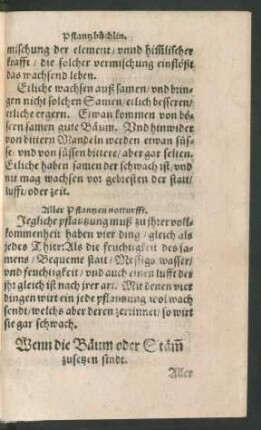 Pflantzbüchlin.
mischung der element/ vnnd him̃lischer
krafft/ die solcher vermischung einflößt
das wachsend leben.
Etliche wachsen auß samen/ vnd brin-
gen nicht solchen Samen/ etlich besseren/
etliche ergern. Etwan kommen von bö-
sern samen gute Bäum. Vnd hinwider
von bittern Mandeln werden etwan süs-
se/ vnd von süssen bittere/ aber gar selten.
Etliche haben samen der schwach ist/ vnd
nit mag wachsen vor gebresten der statt/
lufft/ oder zeit.
Aller Pflantzen notturfft.
Jegliche pflantzung muß zu jhrer voll-
kommenheit haben vier ding/ gleich als
jedes Thier: Als die feuchtigkeit des sa-
mens/ Bequeme statt/ Messigs wasser/
vnd feuchtigkeit/ vnd auch einen lufft der
jhr gleich ist nach jrer art. Mit denen vier
dingen wirt ein jede pflantzung wol wach
send/ welchs aber deren zerrinnet/ so wirt
sie gar schwach.
Wenn die Bäum oder Stäm̃
zusetzen sindt.
Aller